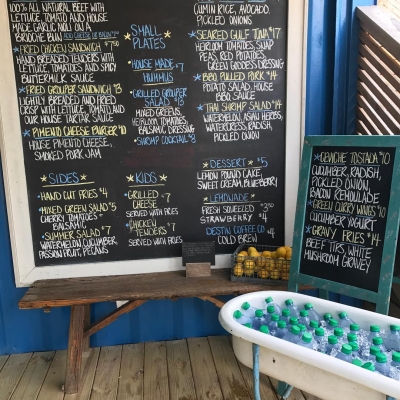 100% ALL NATURAL BEEF WITH
LETTUCE, TOMATO AND HOUSE
MADE GARLIC AIOLI ON A
BRIOCHE BUN
FRIED CHICKEN SANDWICH
HAND BREADED TENDERS WITH
LETTUCE, TOMATOES AND SPICY
BUTTERMILK SAUCE
FRIED GROUPER SANDWICH
LIGHTLY BREADED AND FRIED
CRISP WITH LETTUCE, TOMATO AND
OUR HOUSE TARTAR SAUCE
PIMENTO CHEESE BURGER $10
HOUSE PIMENTO CHEESE,
SMOKED PORK JAM
SIDES
HAND CUT FRIES $4
MIXED GREEN SALAD $5
CHERRY TOMATOES
BALSAMIC
SUMMER SALAD $7
WATERMELON, CUCUMBER
PASSION FRUIT, PECANS
SMALL
PLATES
HOUSE MADE $7
HUMMUS
GRILLED GROUPER
SALAD
MIXED GREENS,
HEIRLOOM TOMATOES,
BALSAMIC DRESSING
SHRIMP COCKTAIL $8
KIDS
GRILLED $7
CHEESE
SERVED WITH FRIES
CHICKEN $7
TENDERS
SERVED WITH FRIES
RICE, AVOCADO
PICKLED ONIONS
SEARED GULF TUNA $17
HEIRLOOM TOMATOES, SNAP
PEAS, RED POTATOES,
GREEN GODDESS DRESSING
BBQ PULLED PORK $14
POTATO SALAD, HOUSE
BBQ SAUCE
THAI SHRIMP SALAD $14
WATERMELON, ASIAN HERBS,
WATERCRESS, RADISH,
PICKLED ONION
DESSERT $5
LEMON POUND CAKE,
SWEET CREAM, BLUEBERRY
LEMONADE
FRESH SQUEEZED
STRAWBERRY
DESTIN COFFEE CO.
COLD BREW
CEVICHE TOSTADA $10
CUCUMBER,
RADISH,
PICKLED ONION,
BACON REMOULADE
GREEN CURRY WINGS $10
CUCUMBER YOGURT
GRAVY FRIES $14
BEEF TIPS, WHITE
MUSHROOM GRAVEY